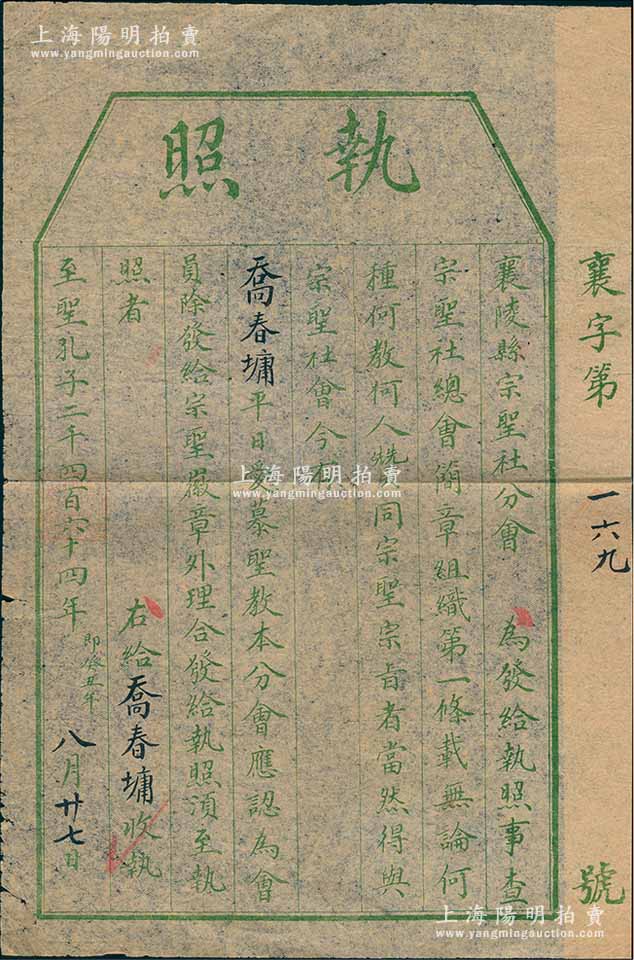 上海陽明拍賣
www.yangmingauction.com
執照
襄陵縣宗聖社分會 為發給執照事查
宗聖社總會簡章組織第一條載無論何
種何教何人 同宗聖宗旨者當然得與
宗聖社會今有
喬春墉平日愛慕聖教本分會應認為會
員除發給宗聖徽章外理合發給執照須至執
照者
右給喬春墉收執
至聖孔子二千四百六十四年即癸丑年 八月廿七日
襄字第一六九號
上海陽明拍賣
www.yangmingauction.com
上海陽明拍賣
www.yangmingauction.com